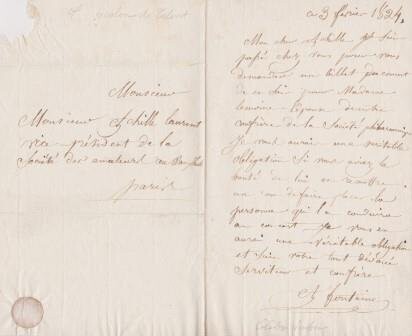 Monsieur
Monsieur Achille Laurent
vice-président de la
Société des amateurs
paris
a 3 fevrier 1824.
Mon cher Achille je suis
passé chez vous pour vous
demander un billet
de ce soir pour Madame
Lemoine épouse de notre
confrère de la Société philharmonique
je vous aurai une véritable
obligation Si vous aviez la
bonté de lui en remettre
un
personne qui la conduira
au concert je vous en
aurai une véritable obligation
et suis votre tout dévoué
Serviteur et confrère
Fontaine